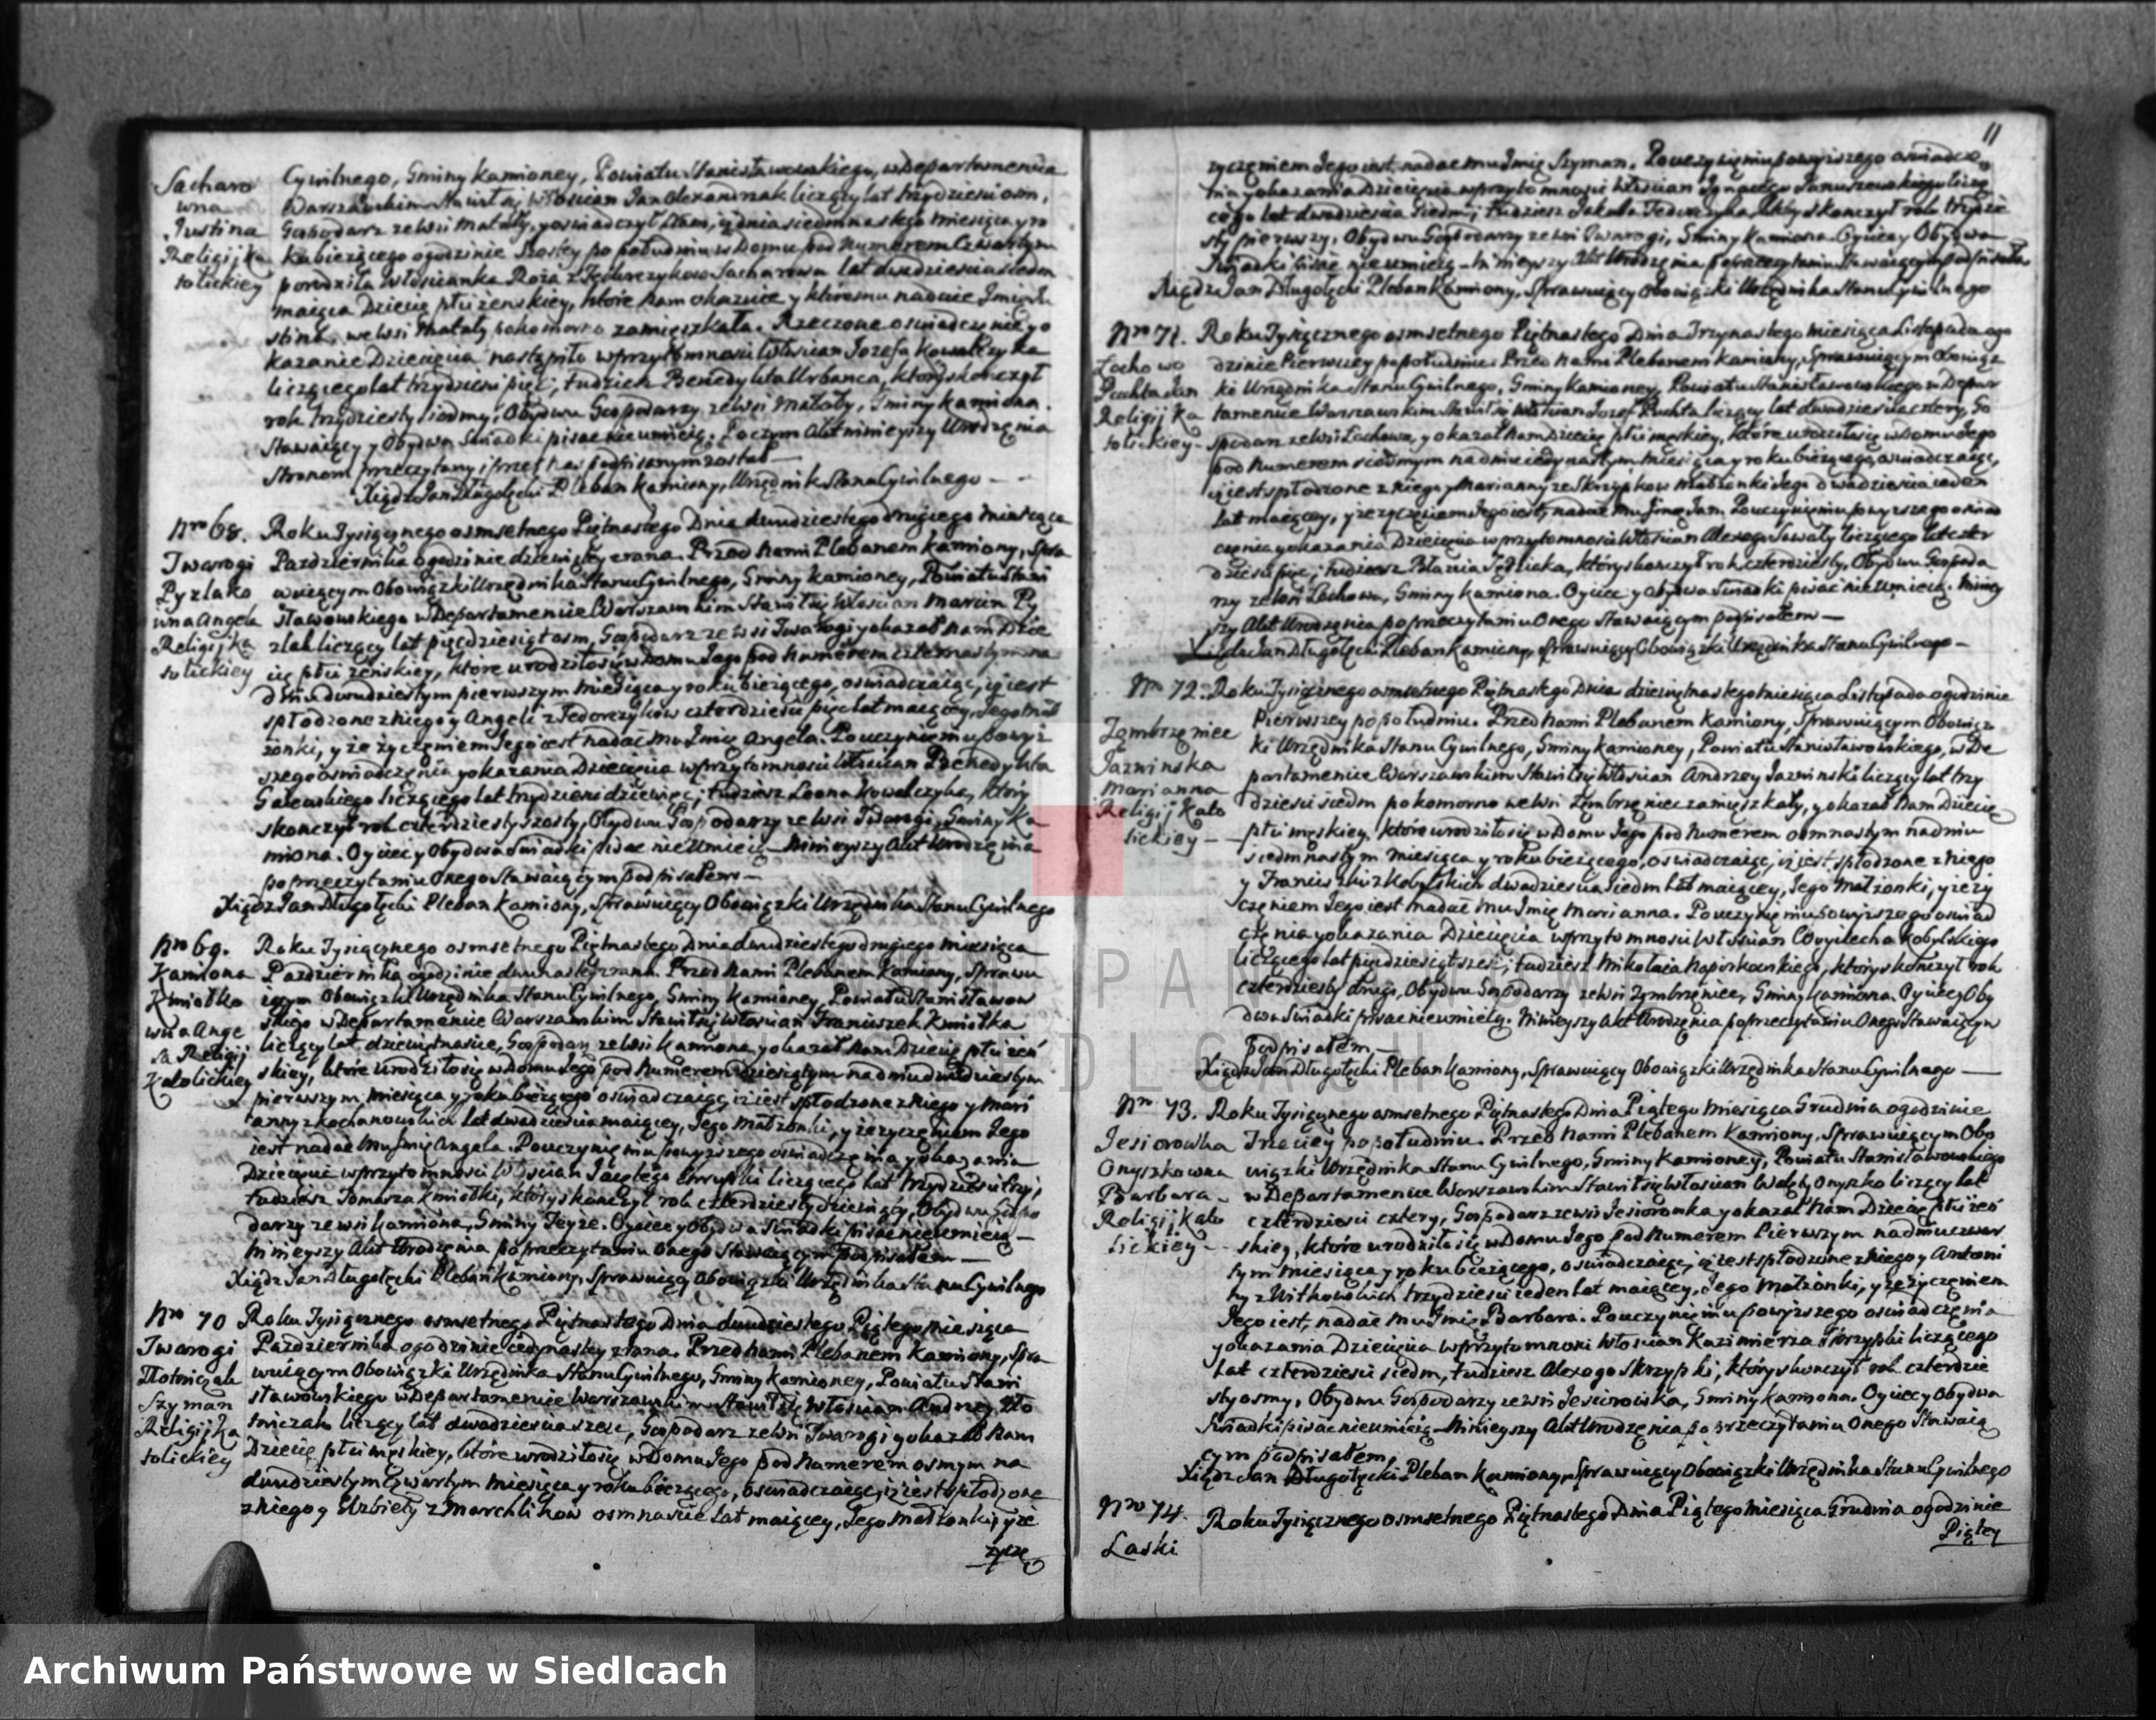 Sacharo
wna
Justina
Religij Ka
tolickiey
Cywilnego, Gminy Kamioney, Powiatu Stanisławowskiego, w Departamencie
Warszawskim Stawił się Włościan Jan Olexandrak liczący lat trzydzieści osm,
Gospodarz ze wsi Matały, y oswiadczył Nam, iż dnia siedmnastego miesiąca y ro
ku bieżącego o godzinie Szostey po południu w Domu pod Numerem Czwartym
porodziła Włoscianka Roża z Fedorczykow Sacharowa lat dwadziescia siedm
maiąca Dziecię płci żenskiey, które Nam okazuie y któremu nadaie Jmię Ju
stina, we wsi Matały zamięszkała. Rzeczone oswiadczęnie y o
kazanie Dziecięcia nastąpiło w przytomnosci Włoscian Jozefa Kowalczyka
liczącego lat trzydziesci pięc; tudzież Benedykta Urbanca, ktory skonczył
rok trzydziesty siodmy; Obydwu Gospodarzy ze wsi Matały, Gminy Kamiona.
Stawaiący y Obydwa Swiadki pisac nie umieią. Poczym Akt ninieyszy Urodzęnia
Stronom przeczytany i przez Nas podpisanym został
Xiądz Jan Długołęcki Pleban Kamiony, Urzędnik Stanu Cywilnego
Nro 68.
Twarogi
Pyzlako
wna Angela
Religij Ka
tolickiey
Roku Tysiącznego osmsetnego Piętnastego Dnia dwudziestego drugiego miesiąca
Pazdziernika o godzinie dziewiątey zrana. Przed Nami Plebanem Kamiony, Spra
wuiącym Obowiązki Urzędnika Stanu Cywilnego, Gminy Kamioney, Powiatu Stani
sławowskiego w Departamencie Warszawskim Stawił się Włoscian Marcin Py
zlak liczący lat pięcdziesiąt osm, Gospodarz ze wsi Twarogi y okazał Nam Dzie
cię płci żenskiey, ktore urodziło się w Domu Jego pod Numerem czternastym na
dniu dwudziestym pierwszym miesiąca y roku bieżącego, oswiadczaiąc, iż iest
spłodzone z Niego y Angeli z Fedorczykow czterdziesci pięc lat maiącey, Jego Mał
żonki, y że życzęniem Jego iest nadać mu Jmię Angela. Po uczynięniu powyż
szego oswiadczęnia y okazania Dziecięcia w przytomnosci Włoscian Benedykta
Galewskiego liczącego lat trzydziesci dziewięc; tudzież Leona Kowalczyka, ktory
skonczył rok czterdziesty szosty, Obydwu Gospodarzy ze wsi Twarogi, Gminy Ka
miona. Oyciec y Obydwa Swiadki pisac nie Umieią. Ninieyszy Akt Urodzęnia
po przeczytaniu Onego Stawaiącym podpisałem
Xiądz Jan Długołęcki Pleban Kamiony, Sprawuiący Obowiązki Urzędnika Stanu Cywilnego
Nro 69.
Kamiona
Kmiołko
wna Ange
la Religij
Katolickiey
Roku Tysiącznego osmsetnego Piętnastego Dnia dwudziestego drugiego miesiąca
Pazdziernika o godzinie dwunastey zrana. Przed Nami Plebanem Kamiony, Sprawu
iącym Obowiązki Urzędnika Stanu Cywilnego, Gminy Kamioney, Powiatu Stanisławow
skiego w Departamencie Warszawskim Stawił się Włoscian Franciszek Kmiołka
liczący lat dziewiętnascie, Gospodarz ze wsi Kamiona y okazał Nam Dziecię płci żeń
skiey, ktore urodziło się w Domu Jego pod Numerem dziesiątym na dniu dwudziestym
pierwszym miesiąca y roku bieżącego oswiadczaiąc, iż iest spłodzone z Niego y Mari
anny z Kochanowskich lat dwadziescia maiącey, Jego Małżonki, y że życzęniem Jego
iest nadać Mu Jmię Angela. Po uczynięniu powyższego oswiadczęnia y okazania
Dziecięcia w przytomnosci Włoscian liczącego lat trzydziesci trzy;
tudzież Tomasza Kmiołki, ktory skonczył rok czterdziesty dziewiąty, Obydwu Gospo
darzy ze wsi Kamiona, Gminy Teyże. Oyciec y Obydwa Swiadki pisac nie umieią
Ninieyszy Akt Urodzęnia po przeczytaniu Onego Stawaiącym podpisałem
Xiądz Jan Długołęcki Pleban Kamiony, Sprawuiący Obowiązki Urzędnika Stanu Cywilnego
Nro 70
Twarogi
Płotniczak
Szyman
Religij Ka
tolickiey
Roku Tysiącznego osmsetnego Piętnastego Dnia dwudziestego Piątego miesiąca
Pazdziernika o godzinie iedynastey zrana. Przed Nami Plebanem Kamiony, Spra
wuiącym Obowiązki Urzędnika Stanu Cywilnego, Gminy Kamioney, Powiatu Stani
sławowskiego w Departamencie Warszawskim Stawił się Włoscian Andrzey Pło
tniczak liczący lat dwadziescia szesc, Gospodarz ze wsi Twarogi y okazał Nam
Dziecię płci męskiey, ktore urodziło się w Domu Jego pod Numerem osmym na
dwudziestym Czwartym miesiąca y roku bieżącego, oswiadczaiąc, iż iest spłodzone
z Niego y Elzbiety z Marchlikow osmnascie lat maiącey, Jego Małżonki, y że
życzę
11
życzęniem Jego iest nadac mu Jmię Szyman. Po uczynięniu powyższego oswiadczę
nia y okazania Dziecięcia w przytomnosci Włoscian Ignacego Januszewskiego liczą
cego lat dwadziescia siedm; tudzież Jakuba Fedorczyka, ktory skonczył rok trzydzie
sty pierwszy, Obydwu Gospodarzy ze wsi Twarogi, Gminy Kamiona. Oyciec y Obydwa
Swiadki pisac nie umieią. Ninieyszy Akt Urodzęnia po przeczytaniu Stawaiącym podpisałem
Xiądz Jan Długołęcki Pleban Kamiony, Sprawuiący Obowiązki Urzędnika Stanu Cywilnego
Nro 71.
Lochowo
Puchta Jan
Religij Ka
tolickiey
Roku Tysiącznego osmsetnego Piętnastego Dnia Trzynastego miesiąca Listopada o go
dzinie Pierwszey po południu. Przed Nami Plebanem Kamiony, Sprawuiącym Obowiąz
ki Urzędnika Stanu Cywilnego, Gminy Kamioney, Powiatu Stanisławowskiego w Depar
tamencie Warszawskim Stawił się Włoscian Jozef Puchta liczący lat dwadziescia cztery, Go
spodarz ze wsi Lochowa, y okazał Nam Dziecię płci męskiey, ktore urodziło się w Domu Jego
pod Numerem siodmym na dniu iedynastym miesiąca y roku bieżącego, oswiadczaiąc,
iż iest spłodzone z Niego y Marianny ze Skrzypkow Małżonki Jego dwadziescia ieden
lat maiącey, y że życzęniem Jego iest, nadać Mu Jmię Jan. Po uczynięniu powyższego oswiad
częnia y okazania Dziecięcia w przytomnosci Włoscian liczącego lat czter
dziesci pięc; tudzież Błażeia, ktory skonczył rok czterdziesty, Obydwu Gospoda
rzy ze wsi Lochowa, Gminy Kamiona. Oyciec y Obydwa Swiadki pisac nie Umieią. Niniey
szy Akt Urodzęnia po przeczytaniu Onego Stawaiącym podpisałem
Xiądz Jan Długołęcki Pleban Kamiony, Sprawuiący Obowiązki Urzędnika Stanu Cywilnego
Nro 72.
Zęmbrzęniec
Jazwinska
Marianna
Religij Kato
lickiey
Roku Tysiącznego osmsetnego Piętnastego Dnia dziewiętnastego miesiąca Listopada o godzinie
Pierwszey po południu. Przed Nami Plebanem Kamiony, Sprawuiącym Obowiąz
ki Urzędnika Stanu Cywilnego, Gminy Kamioney, Powiatu Stanisławowskiego, w De
partamencie Warszawskim Stawił się Włoscian Andrzey Jazwinski liczący lat trzy
dziesci siedm po komorno we wsi Zęmbrzęniec zamięszkały, y okazał Nam Dziecię
płci męskiey, ktore urodziło się w Domu Jego pod Numerem osmnastym na dniu
siedmnastym miesiąca y roku bieżącego, oswiadczaiąc, iż iest spłodzone z Niego
y Franciszki z Kobylskich dwadziescia siedm lat maiącey, Jego Małżonki, y że ży
częniem Jego iest nadać mu Jmię Marianna. Po uczynięniu powyższego oswiad
częnia y okazania Dziecięcia w przytomnosci Włoscian Woyciecha Kobylskiego
liczącego lat pięcdziesiąt szesc; tudzież Mikołaia Napiorkowskiego, ktory skonczył rok
czterdziesty drugi, Obydwu Gospodarzy ze wsi Zymbrzęniec, Gminy Kamiona. Oyciec y Oby
dwa Swiadki pisac nie umieią. Ninieyszy Akt Urodzęnia po przeczytaniu Onego Stawaiącym
podpisałem
Xiądz Jan Długołęcki Pleban Kamiony, Sprawuiący Obowiązki Urzędnika Stanu Cywilnego
Nro 73.
Jesiorowka
Onyszkowna
Barbara
Religij Kato
lickiey
Roku Tysiącznego osmsetnego Piętnastego Dnia Piątego Miesiąca Grudnia o godzinie
Trzeciey po południu. Przed Nami Plebanem Kamiony, Sprawuiącym Obo
wiązki Urzędnika Stanu Cywilnego, Gminy Kamioney, Powiatu Stanisławowskiego
w Departamencie Warszawskim Stawił się Włoscian Walęty Onyszko liczący lat
czterdziesci cztery, Gospodarz ze wsi Jesiorowka y okazał Nam Dziecię płci żeń
skiey, ktore urodziło się w Domu Jego pod Numerem Pierwszym na dniu czwar
tym miesiąca y roku bieżącego, oswiadczaiąc, iż iest spłodzone z Niego y Antoni
ny z Witkowskich trzydziesci ieden lat maiącey, Jego Małżonki, y że życzęniem
Jego iest, nadać Mu Jmię Barbara. Po uczynięniu powyższego oswiadczęnia
y okazania Dziecięcia w przytomnosci Włoscian Kazimierza Skrzypki liczącego
lat czterdziesci siedm, tudzież Alexego Skrzypki, ktory skonczył rok czterdzie
sty osmy, Obydwu Gospodarzy ze wsi Jesiorowka, Gminy Kamiona. Oyciec y Obydwa
Swiadki pisac nie umieią. Ninieyszy Akt Urodzęnia po przeczytaniu Onego Stawaią
cym podpisałem
Xiądz Jan Długołęcki Pleban Kamiony, Sprawuiący Obowiązki Urzędnika Stanu Cywilnego
Nro 74.
Laski
Roku Tysiącznego osmsetnego Piętnastego Dnia Piątego Miesiąca Grudnia o godzinie
Piątey
Archiwum Państwowe w Siedlcach